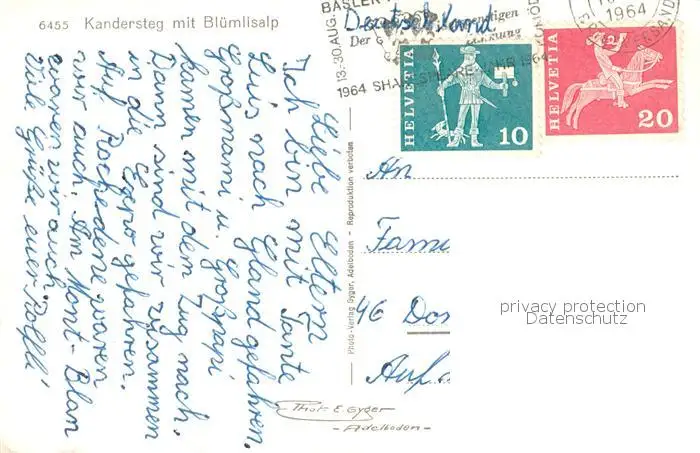 6455 Kandersteg mit Blümlisalp
Liebe Eltern
Ich bin mit Tante
Luis nach Gland gefahren.
Großmami u. Großpapi
kamen mit dem Zug nach.
Dann sind wir zusammen
in die Expo gefahren.
Auf Rochedene waren
wir auch. Am Mont-Blan
waren wir auch.
Viele Grüße euer Rolfli
Photo-Verlag Gyger, Adelboden - Reproduktion verboten
Phot. E. Gyger
- Adelboden -
BASLER
13.-30. AUG.
Der
1964 SHAKESPEARE-JAHR 1964
1964
HELVETIA
10
HELVETIA
20
Deutschland
An
Fami
46 Do
Auf
privacy protection
Datenschutz